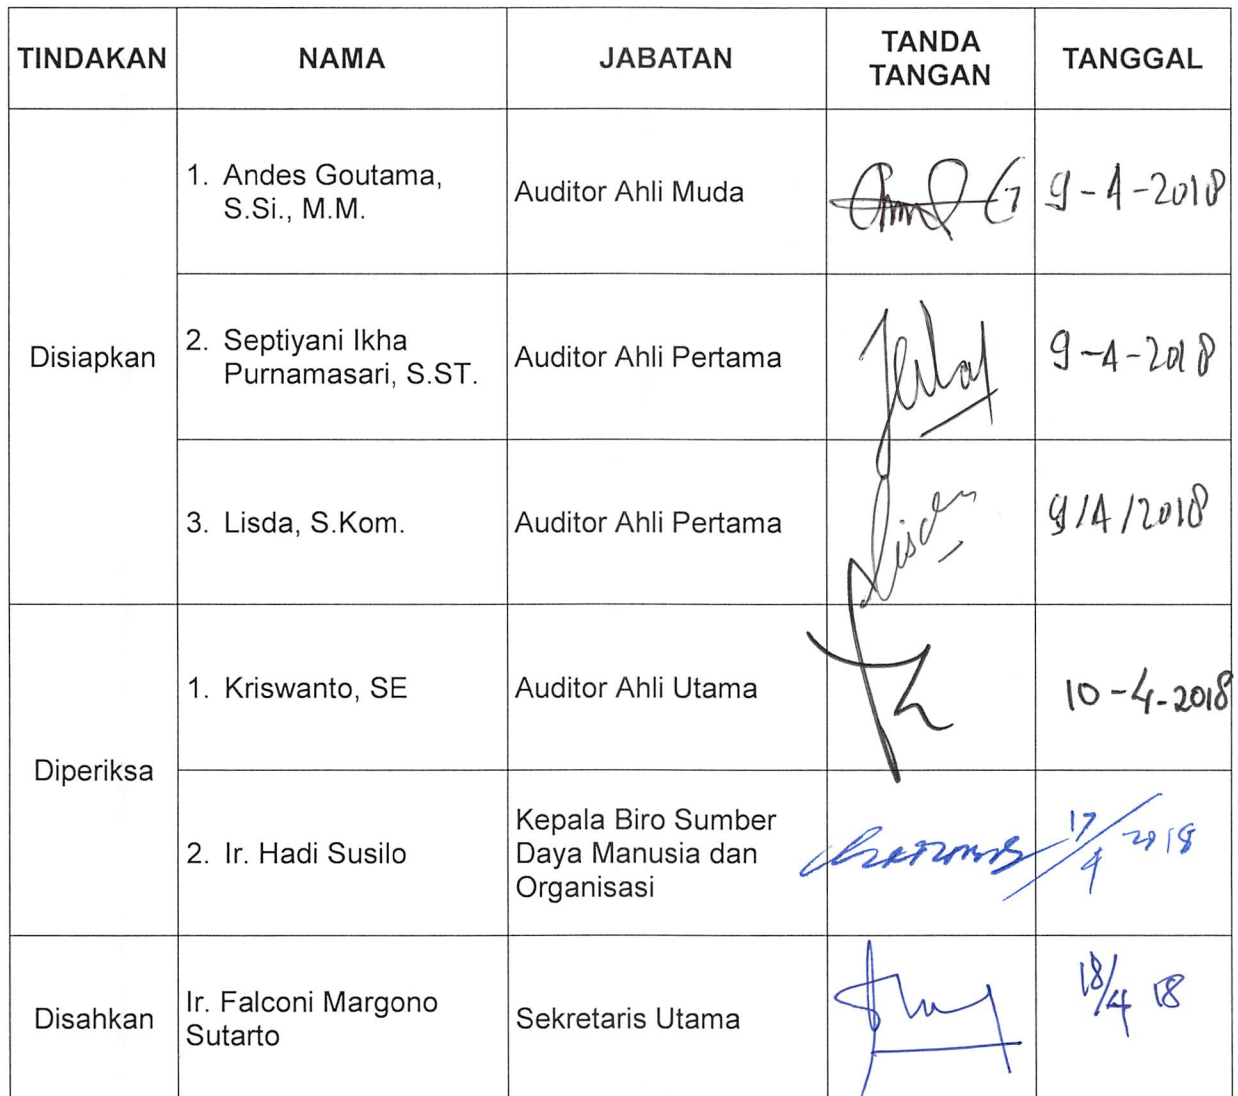 TINDAKAN NAMA JABATAN TANDA TANGAN TANGGAL
Disiapkan
1. Andes Goutama,
S.Si., M.M.
Auditor Ahli Muda
9-4-2018
2. Septiyani Ikha
Purnamasari, S.ST.
Auditor Ahli Pertama
9-4-2018
3. Lisda, S.Kom.
Auditor Ahli Pertama
9/4/2018
Diperiksa
1. Kriswanto, SE
Auditor Ahli Utama
10-4-2018
2. Ir. Hadi Susilo
Kepala Biro Sumber
Daya Manusia dan
Organisasi
17/4 2018
Disahkan
Ir. Falconi Margono
Sutarto
Sekretaris Utama
18/4 18